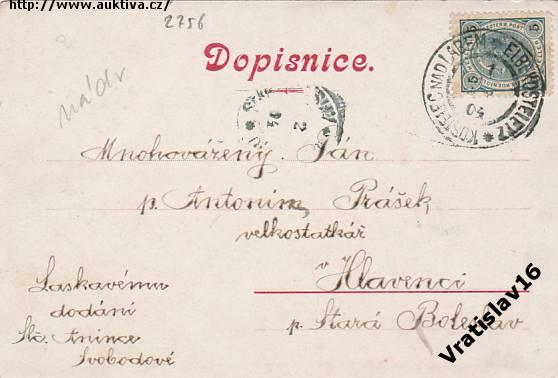 ( http://www.auktiva.cz/ )
2756
Dopisnice.
KOSTELEC NAD LABEM * ELBEKOSTELETZ *
04
5 5
Mnohovážený Pán
p. Antonim Prášek
velkostatkář
v Hlavenci
p. Stará Boleslav
Laskavému
dodání
Slč. Anince
Svobodové
Vratislav16